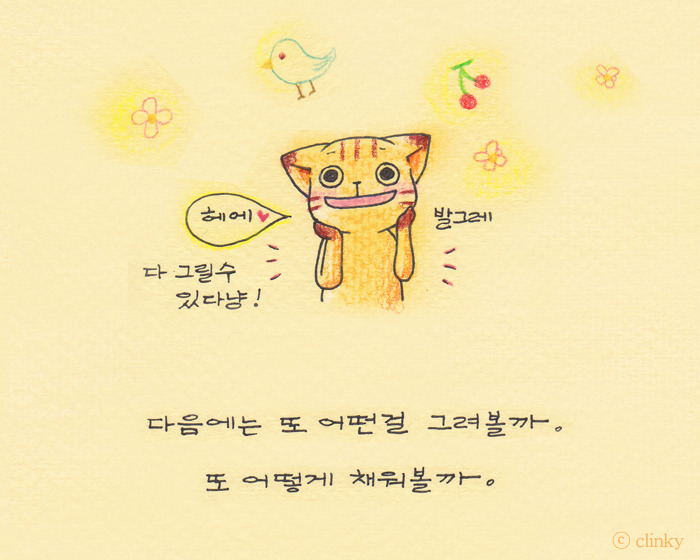 헤에♥
발그레
다 그릴수
있다냥!
다음에는 또 어떤걸 그려볼까.
또 어떻게 채워볼까.
ⓒ clinky